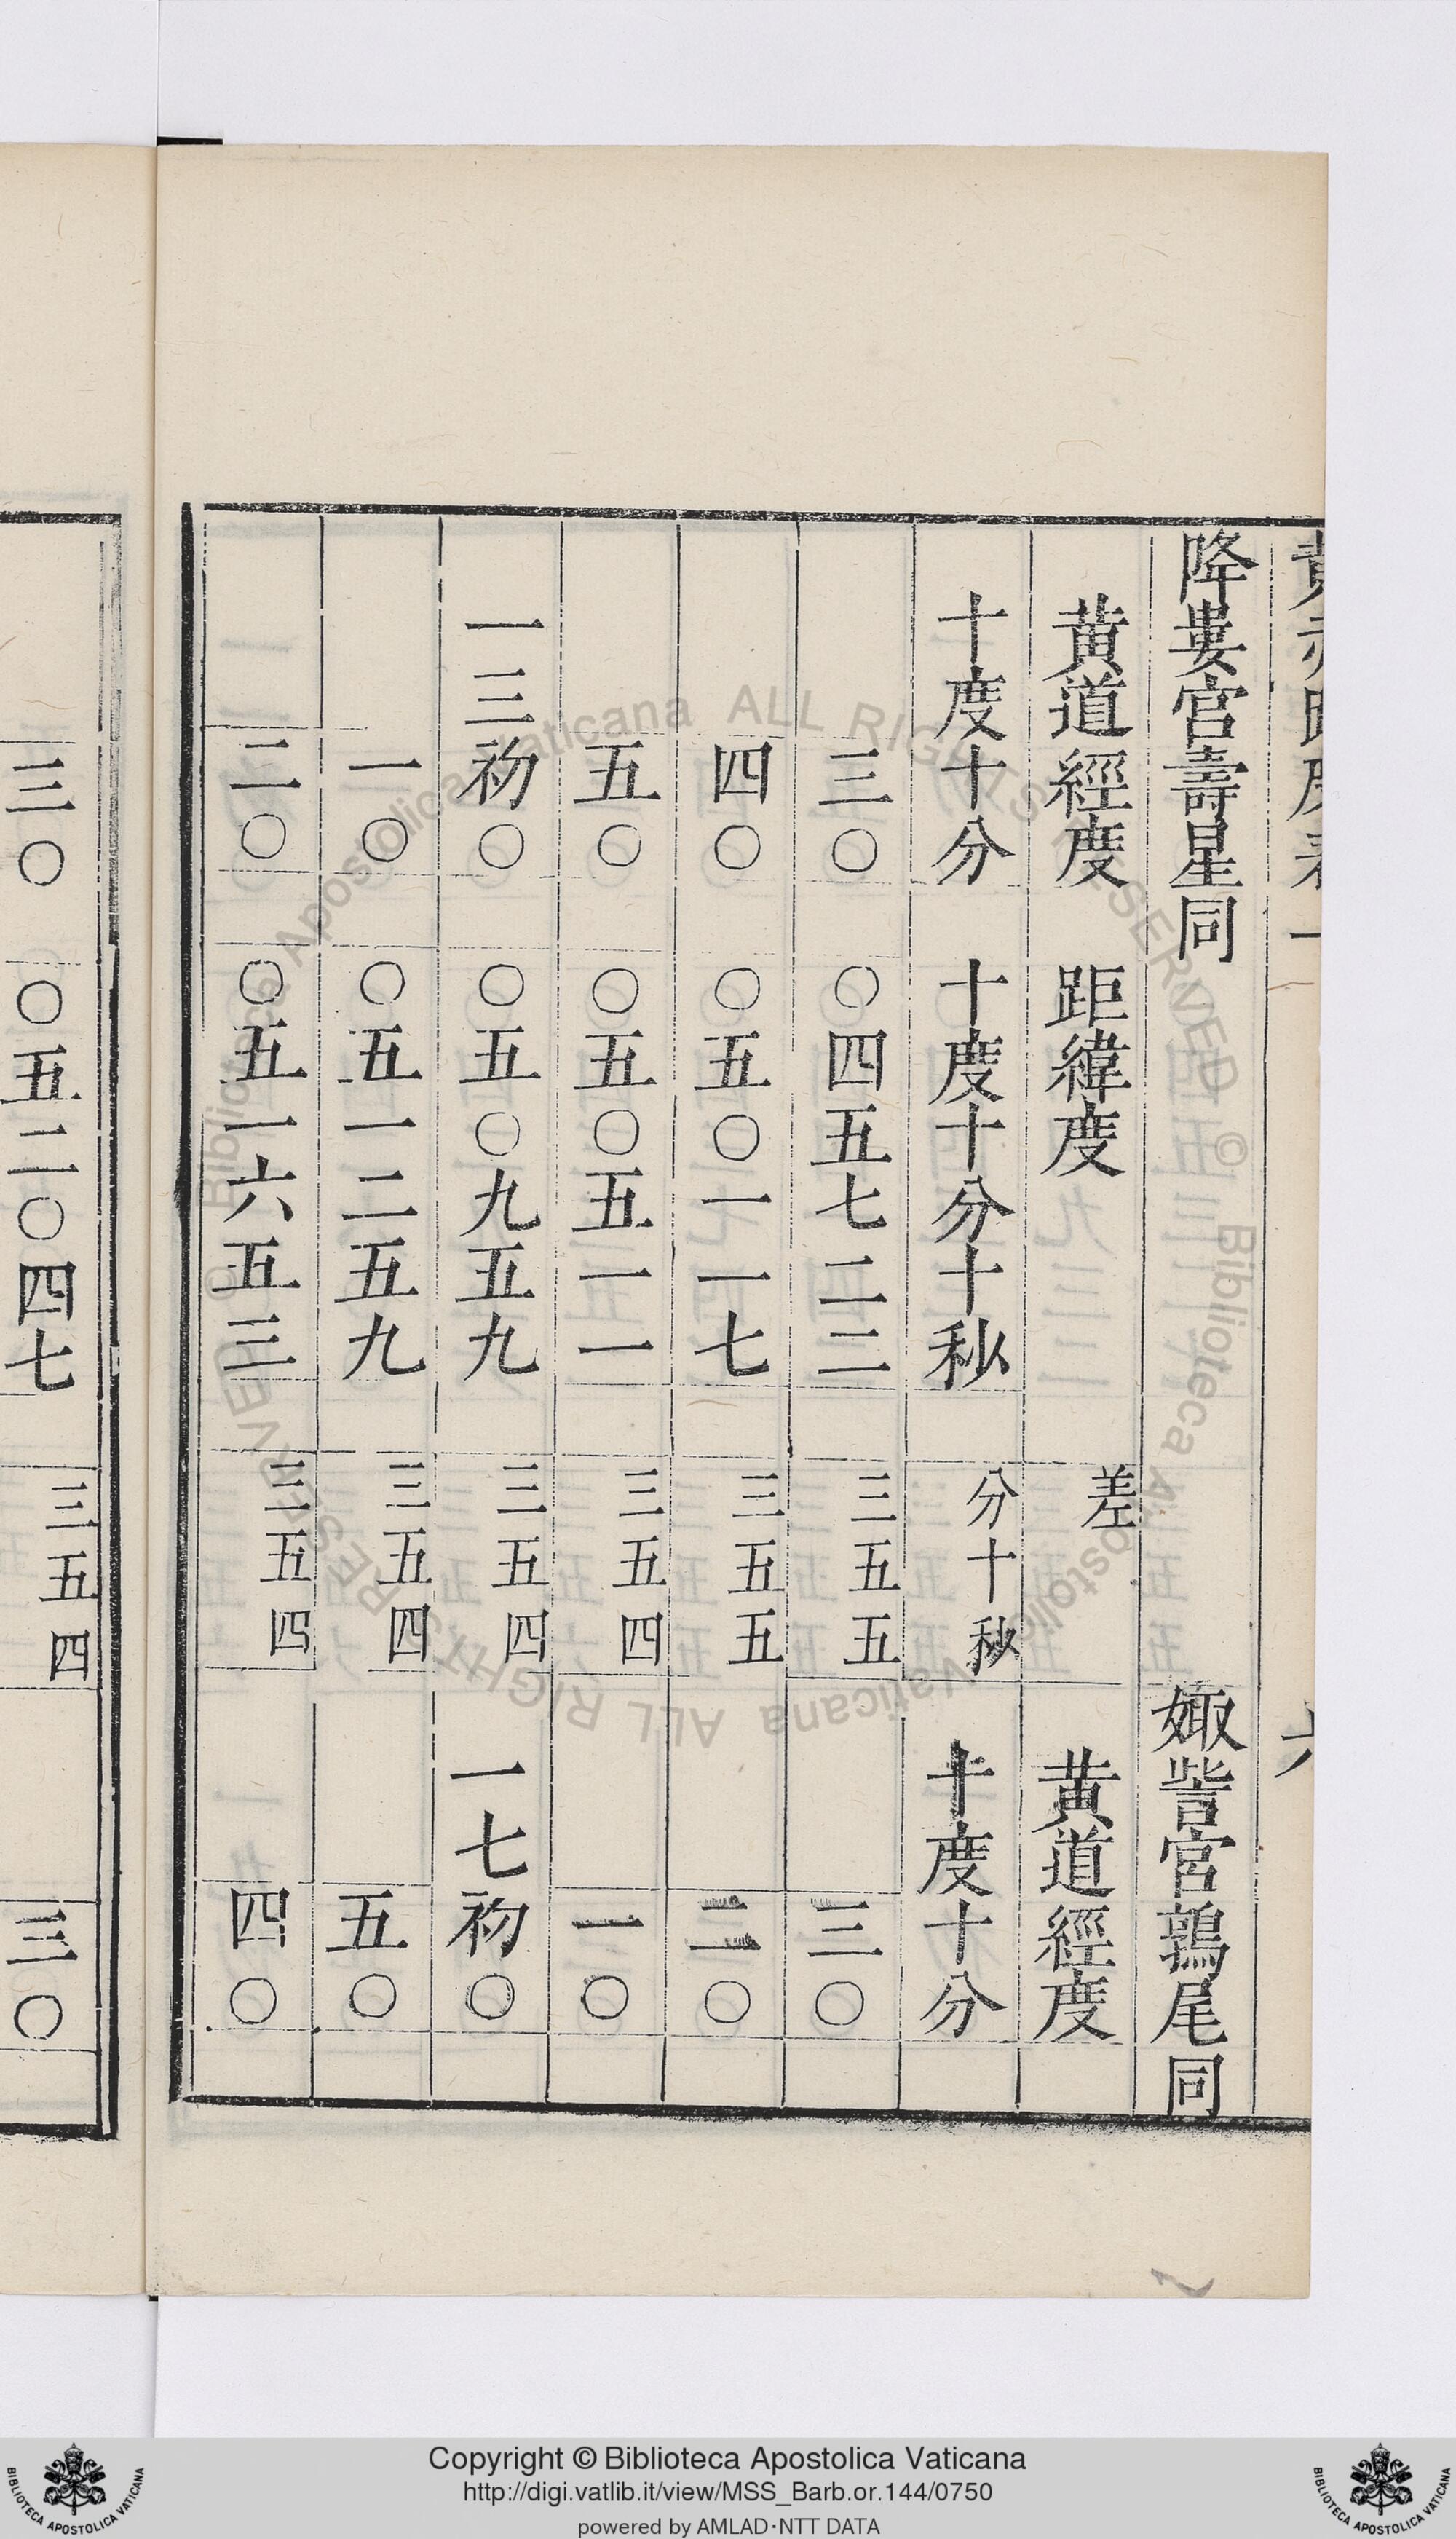 降婁宮壽星同 娵訾宮鶉尾同
黃道經度 距緯度 差 黃道經度
十度十分 十度十分十秒 分十秒 十度十分
三〇 〇四五七二二 三五五 三〇
四〇 〇五〇一一七 三五五 二〇
五〇 〇五〇五一一 三五四 一〇
一三初〇 〇五〇九五九 三五四 一七初〇
一〇 〇五一二五九 三五四 五〇
二〇 〇五一六五三 三五四 四〇
三〇 〇五二〇四七 三五四 三〇
Biblioteca Apostolica Vaticana ALL RIGHTS RESERVED © Biblioteca Apostolica Vaticana ALL RIGHTS RESERVED ©
Copyright © Biblioteca Apostolica Vaticana
http://digi.vatlib.it/view/MSS_Barb.or.144/0750
powered by AMLAD·NTT DATA
BIBLIOTECA APOSTOLICA VATICANA
BIBLIOTECA APOSTOLICA VATICANA